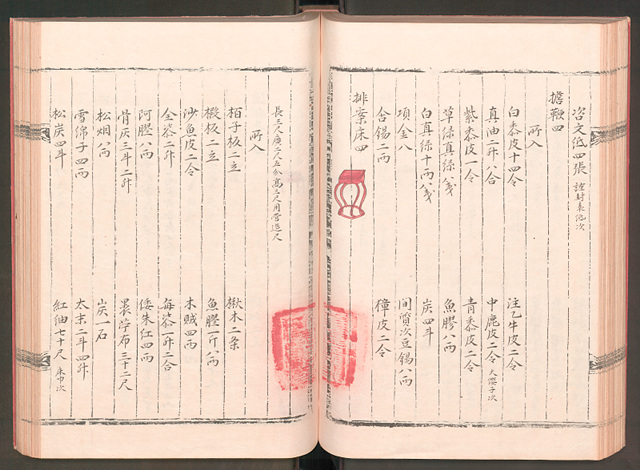 咨文紙四張 謹封次
擔鞭四
所入
白黍皮十四令 注乙牛皮二令
真油二升八合 中鹿皮二令 大纓子次
紫黍皮一令 青黍皮二令
草綠真絲八戔 魚膠八兩
白真絲十兩八戔 炭四斗
項金八 間質次豆錫八兩
合錫二兩 獐皮二令
排案床四
長三尺廣二尺五分高三尺用營造尺
所入
栢子板二立 楸木二条
椴板二立 魚膠一斤八兩
沙魚皮二令 木賊四兩
全漆二升 每漆一升二合
阿膠八兩 倭朱紅四兩
骨灰三斗二升 裹漆布三十二尺
松烟八兩 炭一石
雪綿子四兩 太末二斗四升
松炭四斗 紅紬七十尺 床巾次